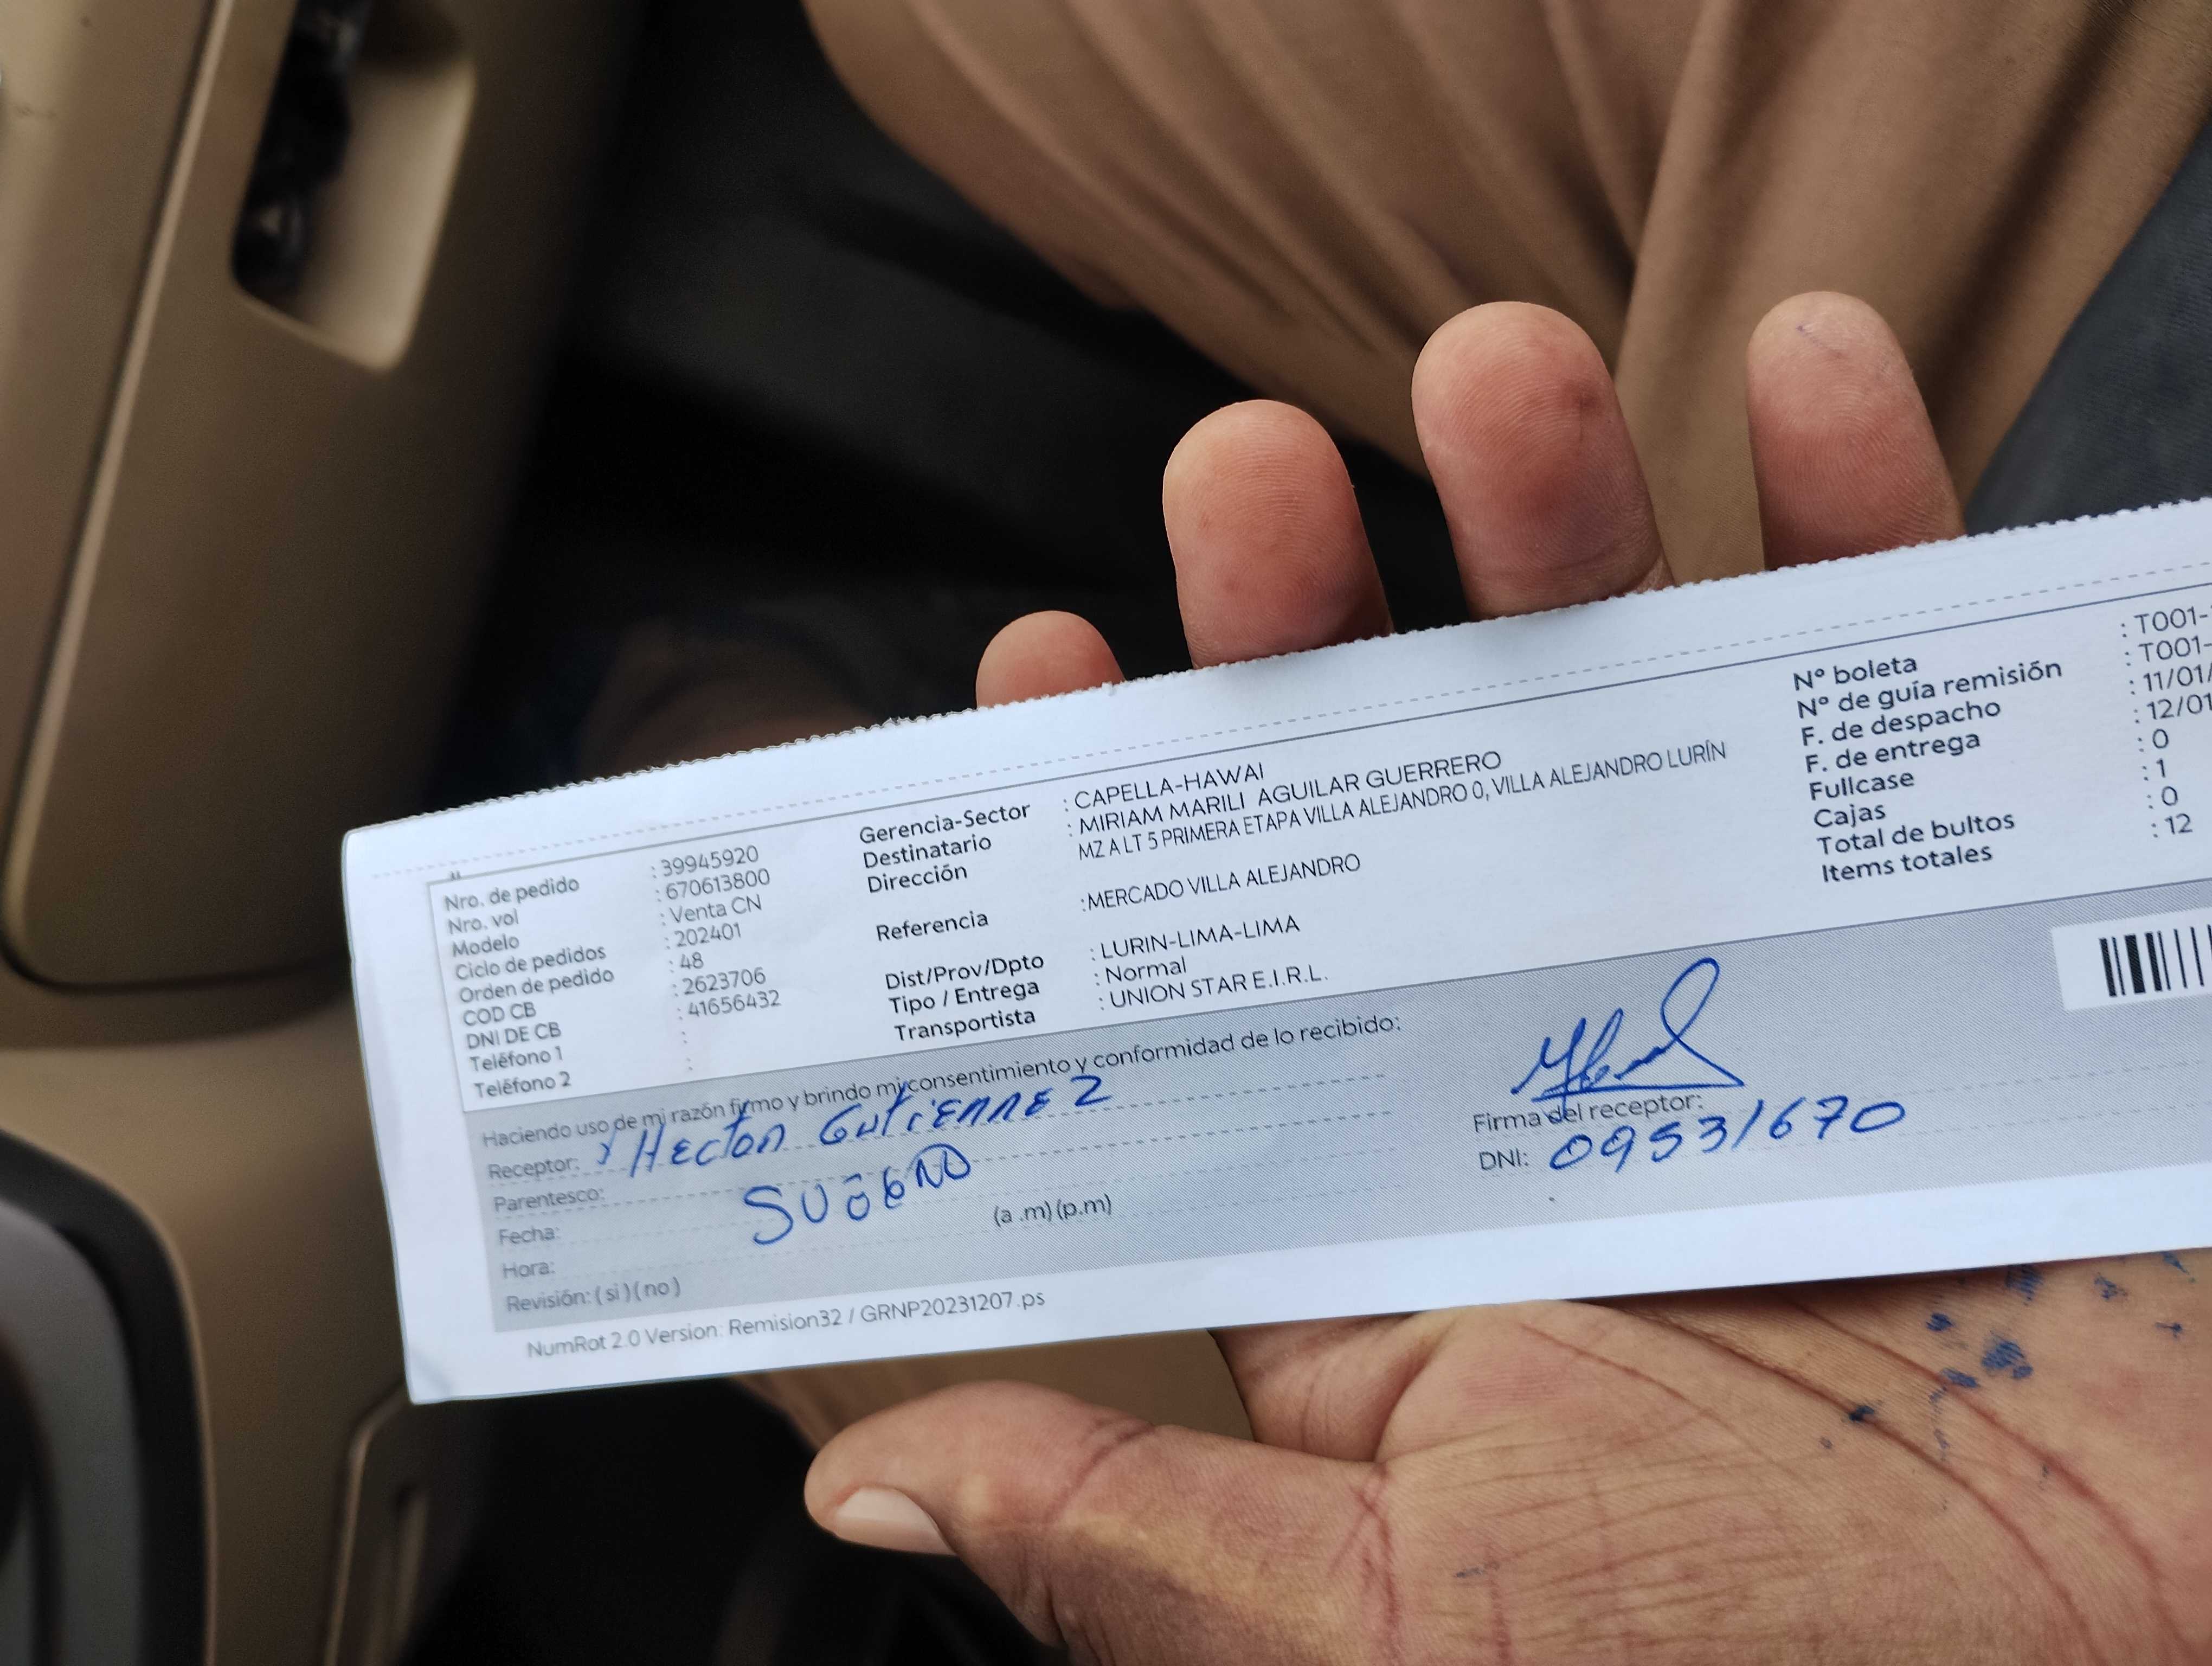 Nro. de pedido : 39945920
Nro. vol : 670613800
Modelo : Venta CN
Ciclo de pedidos : 202401
Orden de pedido : 48
COD CB : 2623706
DNI DE CB : 41656432
Teléfono 1 :
Teléfono 2 :
Gerencia-Sector : CAPELLA-HAWAI
Destinatario : MIRIAM MARILI AGUILAR GUERRERO
Dirección MZ A LT 5 PRIMERA ETAPA VILLA ALEJANDRO 0, VILLA ALEJANDRO LURÍN
Referencia :MERCADO VILLA ALEJANDRO
Dist/Prov/Dpto : LURIN-LIMA-LIMA
Tipo / Entrega : Normal
Transportista : UNION STAR E.I.R.L.
Nº boleta : T001-
Nº de guía remisión : T001-
F. de despacho : 11/01/
F. de entrega : 12/01
Fullcase : 0
Cajas : 1
Total de bultos : 0
Items totales : 12
Haciendo uso de mi razón firmo y brindo mi consentimiento y conformidad de lo recibido:
Receptor: Hector Gutierrez
Parentesco:
Fecha: 
Hora: (a .m) (p.m)
Revisión: ( si ) ( no )
Firma del receptor:
DNI: 09531670
NumRot 2.0 Version: Remision32 / GRNP20231207.ps